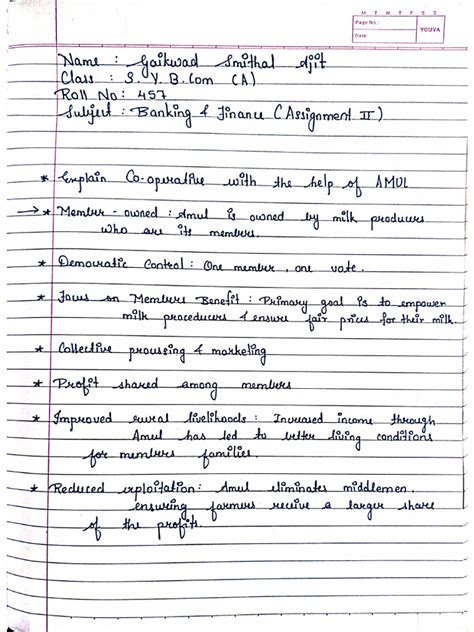 M T W T F S S
Page No.:
Date:
YOUVA
Name : Gaikwad Smithal Ajit
Class : S.Y.B.Com (A)
Roll No : 457
Subject : Banking & Finance (Assignment II)
* Explain Co-operative with the help of AMUL
→ * Member - owned : Amul is owned by milk producers
who are its members.
* Democratic Control : One member, one vote.
* Focus on Members Benefit : Primary goal is to empower
milk proceducers & ensure fair prices for their milk.
* Collective processing & marketing
* Profit shared among members
* Improved rural livelihoods : Increased income through
Amul has led to better living conditions
for members families.
* Reduced exploitation: Amul eliminates middlemen
ensuring farmers receive a larger share
of the profits.